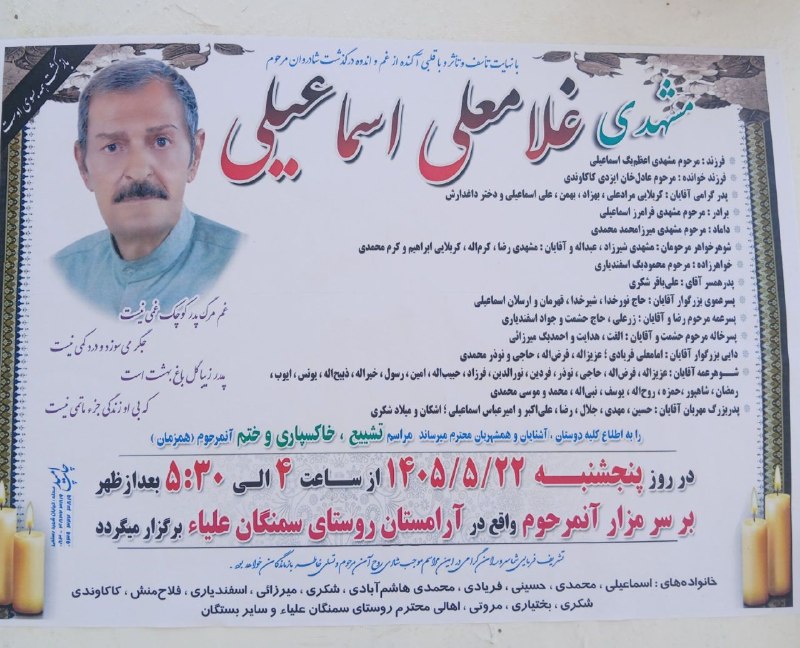 بازگشت همه بسوی اوست
با نهایت تأسف و تأثر و با قلبی آکنده از غم و اندوه درگذشت شادروان مرحوم
مشهدی غلامعلی اسماعیلی
فرزند : مرحوم مشهدی اعظم‌بگ اسماعیلی
فرزند خوانده : مرحوم عادل‌خان ایزدی کاکاوندی
پدر گرامی آقایان : کربلایی مرادعلی ، بهزاد ، بهمن ، علی اسماعیلی و دختر داغدارش
برادر : مرحوم مشهدی فرامرز اسماعیلی
داماد : مرحوم مشهدی میرزامحمد محمدی
شوهرخواهر مرحومان : مشهدی شیرزاد ، عبداله و آقایان : مشهدی رضا ، کرم‌اله ، کربلایی ابراهیم و کرم محمدی
خواهرزاده : مرحوم محمودبگ اسفندیاری
پدرهمسر آقای : علی‌باقر شکری
پسرعموی بزرگوار آقایان : حاج نورخدا ، شیرخدا ، قهرمان و ارسلان اسماعیلی
پسرعمه مرحوم رضا و آقایان : زرعلی ، حاج حشمت و جواد اسفندیاری
پسرخاله مرحوم حشمت و آقایان : الفت ، هدایت و احمدبگ میرزائی
دایی بزرگوار آقایان : امامعلی فریادی ؛ عزیزاله ، فرض‌اله ، حاجی و نوذر محمدی
شـوهرعمه آقایان : عزیزاله ، فرض‌اله ، حاجی ، نوذر ، فردین ، نورالدین ، فرزاد ، حبیب‌اله ، امین ، رسول ، خیراله ، ذبیح‌اله ، یونس ، ایوب ،
رمضان ، شاهپور ، حمزه ، روح‌اله ، یوسف ، نبی‌اله ، محمد و موسی محمدی
پدربزرگ مهربان آقایان : حسین ، مهدی ، جلال ، رضا ، علی‌اکبر و امیرعباس اسماعیلی ؛ اشکان و میلاد شکری
غم مرگ پدر کوچک غمی نیست
جگر می سوزه و درد کمی نیست
پدر زیبا گل باغ بهشت است
که بی او زندگی جزء ماتمی نیست
را به اطلاع کلیه دوستان ، آشنایان و همشهریان محترم میرساند مراسم تشییع ، خاکسپاری و ختم آنمرحوم ( همزمان )
در روز پنجشنبـــه ۱۴۰۵/۵/۲۲ از ســاعت ۴ الـی ۵:۳۰ بعدازظهر
بر سر مزار آنمرحوم واقع در آرامستان روستای سمنگان علیاء برگزار میگردد
تشریف فرمایی شما سروران گرامی در این مراسم موجب شادی روح آن مرحوم و تسلی خاطر بازماندگان خواهد بود .
خانواده‌های : اسماعیلی ، محمدی ، حسینی ، فریادی ، محمدی هاشم‌آبادی ، شکری ، میرزائی ، اسفندیاری ، فلاح‌منش ، کاکاوندی
شکری ، بختیاری ، مروتی ، اهالی محترم روستای سمنگان علیاء و سایر بستگان